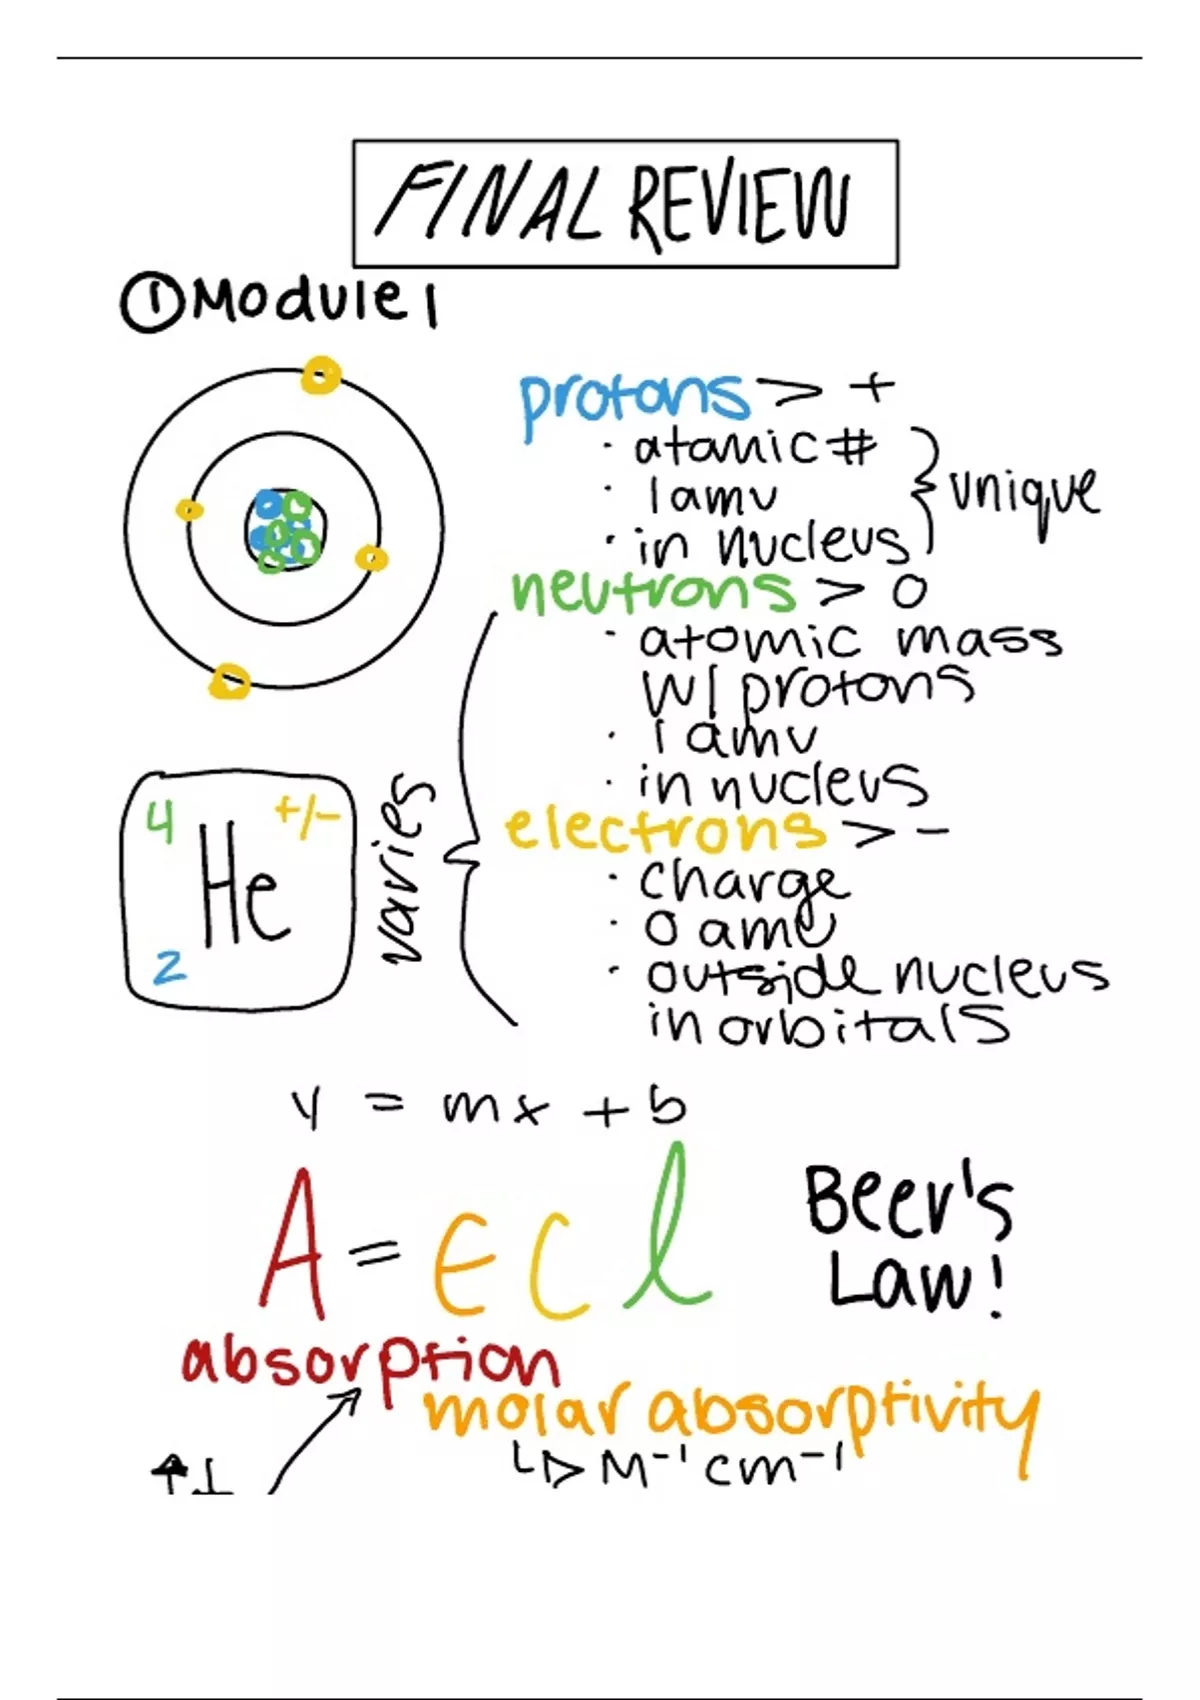 FINAL REVIEW
① Module 1
protons > +
· atomic #
· 1 amu
· in nucleus
} unique
neutrons > 0
· atomic mass
w/ protons
· 1 amu
· in nucleus
electrons > -
· charge
· 0 amu
· outside nucleus
in orbitals
varies
4 +/-
He
2
y = mx + b
A = ε c l
Beer's
Law!
absorption
molar absorptivity
↳ M⁻¹ cm⁻¹